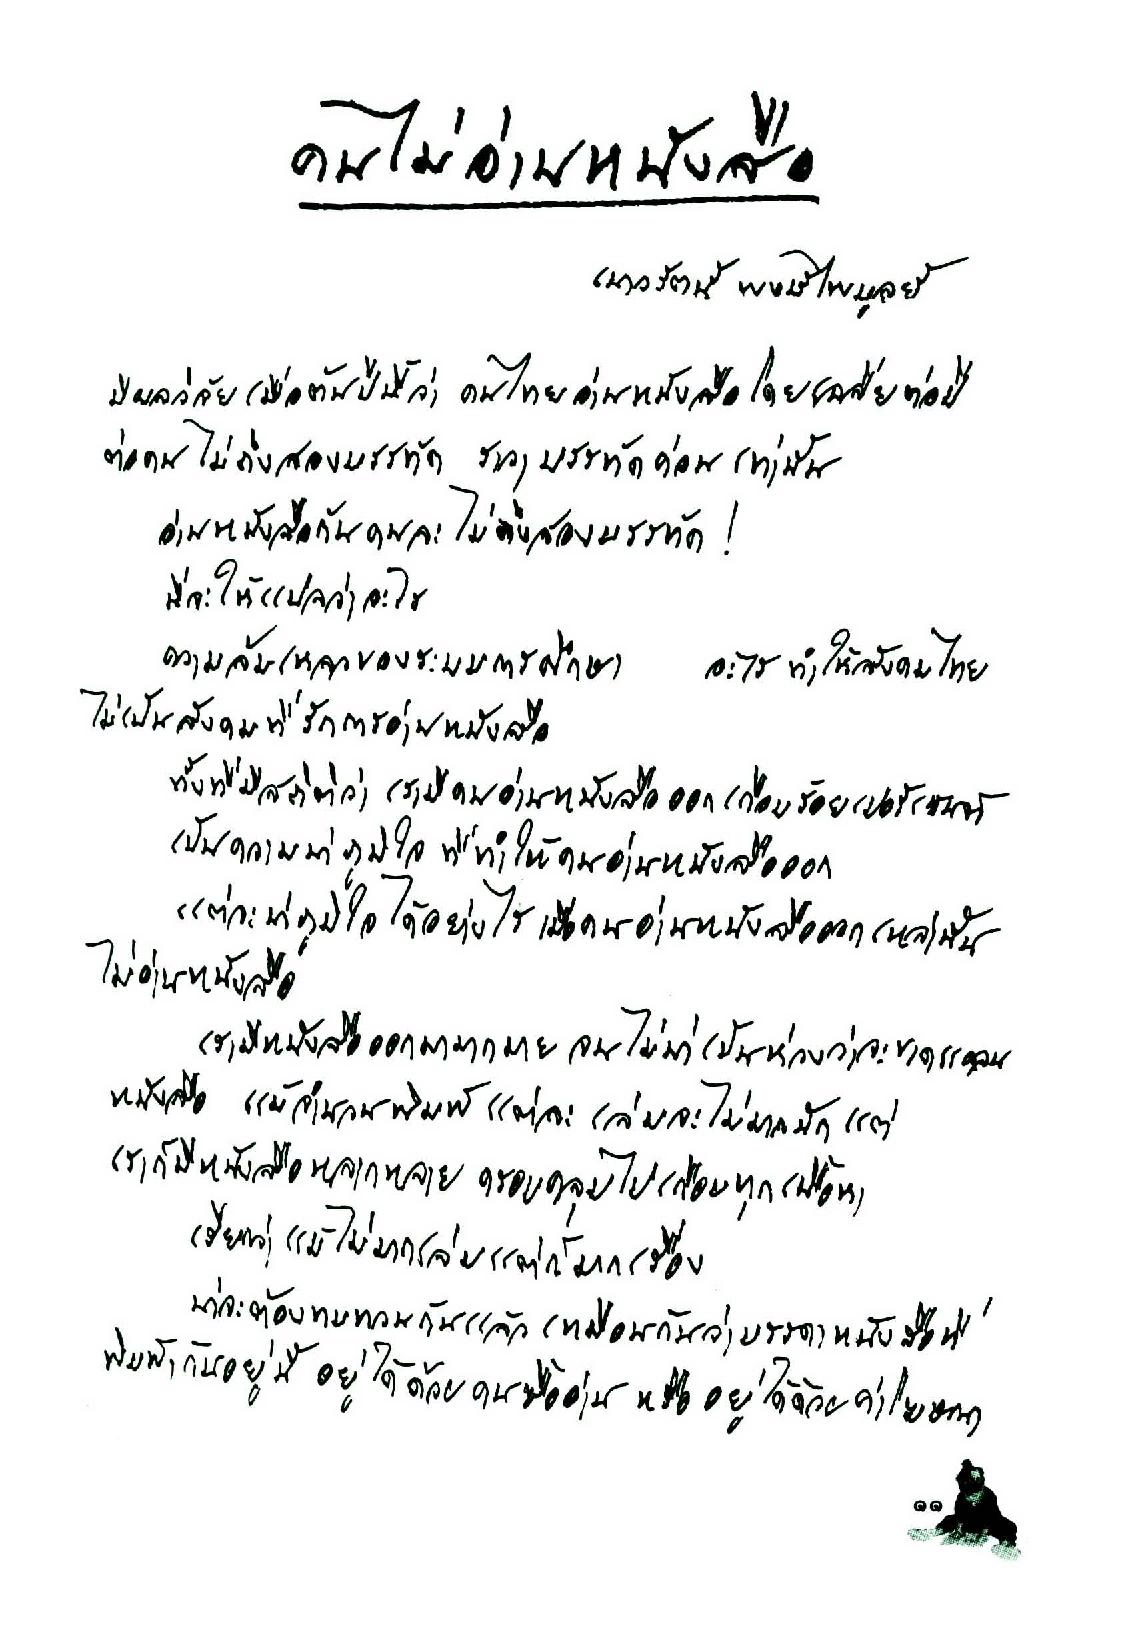 คนไม่อ่านหนังสือ
เนาวรัตน์ พงษ์ไพบูลย์
มีผลวิจัย เมื่อต้นปีนี้ว่า คนไทยอ่านหนังสือโดยเฉลี่ยต่อปี
ต่อคน ไม่ถึงสองบรรทัด ราว บรรทัดค่อน เท่านั้น
อ่านหนังสือกันคนละ ไม่ถึงสองบรรทัด !
นี่จะให้แปลว่าอะไร
ความล้มเหลวของระบบการศึกษา อะไร ทำให้สังคมไทย
ไม่เป็นสังคมที่รักการอ่านหนังสือ
ทั้งที่มีสถิติว่า เรามีคนอ่านหนังสือออกเกือบร้อยเปอร์เซนต์
เป็นความน่าภูมิใจ ที่ทำให้คนอ่านหนังสือออก
แต่จะน่าภูมิใจได้อย่างไร เมื่อคนอ่านหนังสือออกเหล่านั้น
ไม่อ่านหนังสือ
เรามีหนังสือออกมามากมาย จนไม่น่าเป็นห่วงว่าจะขาดแคลน
หนังสือ แม้จำนวนพิมพ์แต่ละ เล่มจะไม่มากนัก แต่
เราก็มีหนังสือหลากหลาย ครอบคลุมไปเกือบทุกเนื้อหา
เรียกว่า แม้ไม่มากเล่มแต่ก็มากเรื่อง
น่าจะต้องทบทวนกันแล้ว เหมือนกันว่าบรรดาหนังสือที่
พิมพ์กันอยู่นี้ อยู่ได้ด้วยคนซื้ออ่าน หรืออยู่ได้ด้วยค่าโฆษณา
๑๑